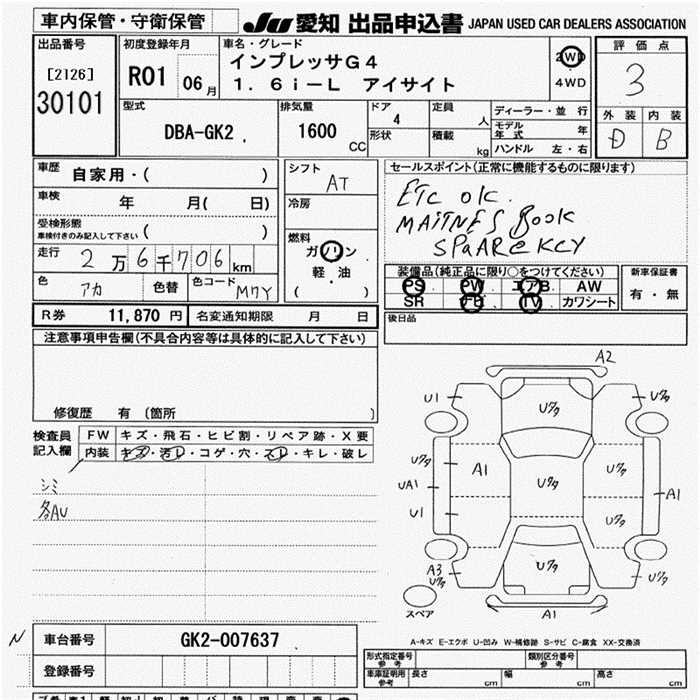 車内保管・守衛保管
JU 愛知 出品申込書 JAPAN USED CAR DEALERS ASSOCIATION
出品番号
[2126]
30101
初度登録年月
R01 06月
車名・グレード
インプレッサG4
1.6i-L アイサイト
2WD
4WD
評価点
3
外装 内装
D B
型式
DBA-GK2
排気量
1600
CC
ドア
4
形状
定員
人
積載
kg
ディーラー・並行
モデル年式 年
ハンドル 左・右
車歴
自家用・( )
車検 年 月( 日)
受検形態
車検付きのみ記入して下さい ( )
走行 2万6千706km
色 アカ 色替 色コード M7Y
シフト
AT
冷房
燃料
ガソリン
軽・油
( )
セールスポイント(正常に機能するものに限ります)
ETC OK.
MAiTNES Book
SPaARe KCY
装備品(純正品に限り○をつけてください)
PS PW エアB. AW
SR TV カワシート
新車保証書
有・無
R券 11,870円 名変通知期限 月 日
後日品
注意事項申告欄(不具合内容等は具体的に記入して下さい)
修復歴 有 〔箇所 〕
検査員記入欄
FW キズ・飛石・ヒビ割・リペア跡・X要
内装 キズ・汚レ・コゲ・穴・スレ・キレ・破レ
シミ
各AU
A2
U1 Uク U7
Uク A1 Uク Uク
UA1 A1
U1 Uク
A3 Uク Uク Uク
スペア A1
A-キズ E-エクボ U-凹み W-補修跡 S-サビ C-腐食 XX-交換済
N 車台番号 GK2-007637
登録番号
形式指定番号 参考 類別区分番号 参考
車庫証明用 参考 長さ cm 幅 cm 高さ cm